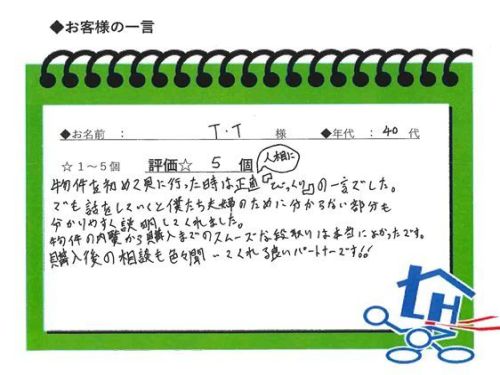 ◆お客様の一言
◆お名前 : T.T 様 ◆年代 : 40 代
☆1～5個 評価☆ 5 個
人相に
物件を初めて見に行った時は正直『びっくり』の一言でした。
でも話をしていくと僕たち夫婦のために分からない部分も
分かりやすく説明してくれました。
物件の内覧から購入までのスムーズな段取りは本当によかったです。
購入後の相談も色々聞いてくれる良いパートナーです!!
LH